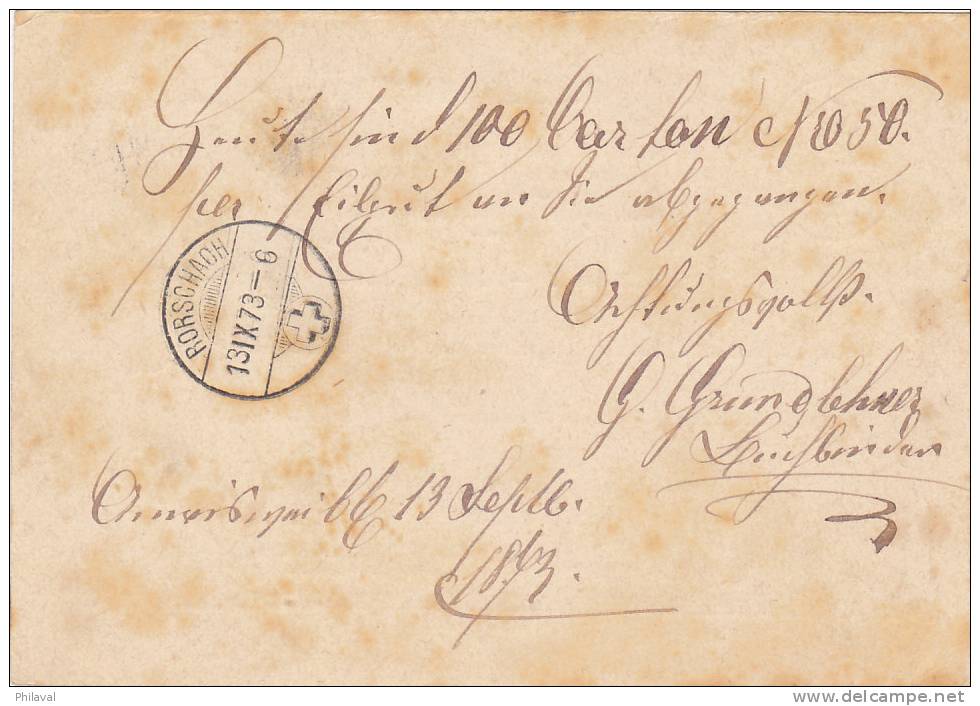 Heute sind 100 Carton No 50.
per Eilgut an Sie abgegangen.
RORSCHACH
13 IX 73 – 6
Achtungsvollst.
G. Grundlehner
Buchbinder
Amrisweil 13 Septb.
1873.
Philaval
delcampe.net